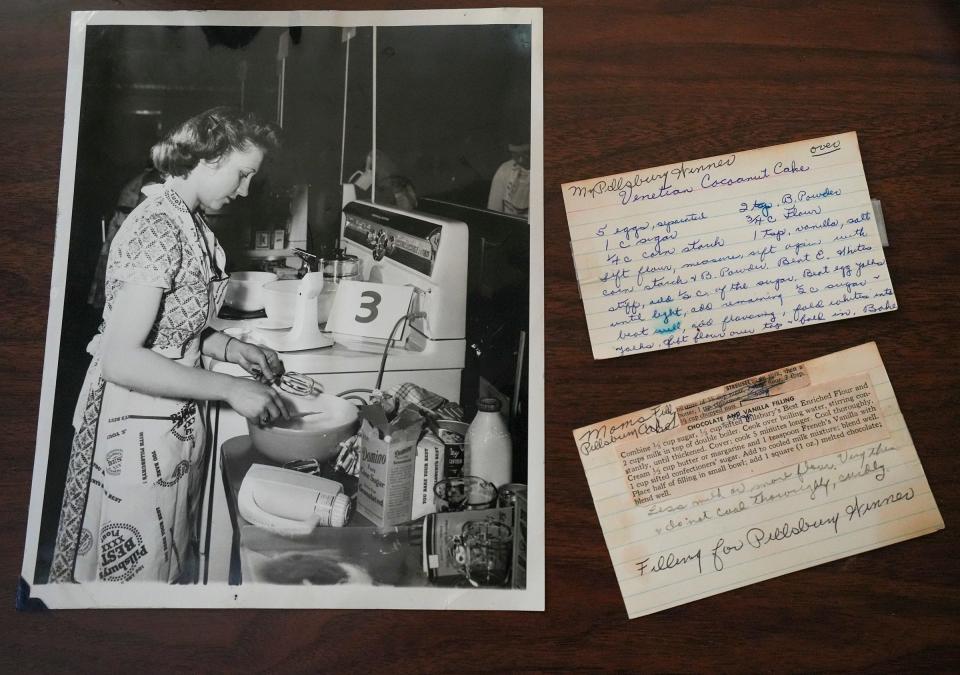 3
Domino
Pure
Cane
Sugar
YOU BAKE YOUR BEST
Pillsbury's
BEST
XXXX
Flour
over
My Pillsbury Winner
Venetian Cocoanut Cake
5 eggs, separated 2 tsp. B. Powder
1 C sugar 3/4 C Flour
1/4 C corn starch 1 tsp. vanilla, salt
Sift flour, measure, sift again with
corn starch & B. Powder. Beat E. Whites
stiff, add 1/2 C. of the sugar. Beat egg yolks
until light, add remaining 1/2 C sugar &
beat well, add flavoring, fold whites into
yolks, sift flour over top & fold in. Bake
Moms Fill
Pillsbury Cake
CHOCOLATE AND VANILLA FILLING
Combine ½ cup sugar, ⅓ cup sifted Pillsbury's Best Enriched Flour and
2 cups milk in top of double boiler. Cook over boiling water, stirring con-
stantly, until thickened. Cover; cook 5 minutes longer. Cool thoroughly.
Cream ½ cup butter or margarine and 1 teaspoon French's Vanilla with
1 cup sifted confectioners' sugar. Add to cooled milk mixture; blend well.
Place half of filling in small bowl; add 1 square (1 oz.) melted chocolate;
blend well.
Less milk or more flour. Very thin
& do not cool thoroughly, curdly.
Filling for Pillsbury Winner